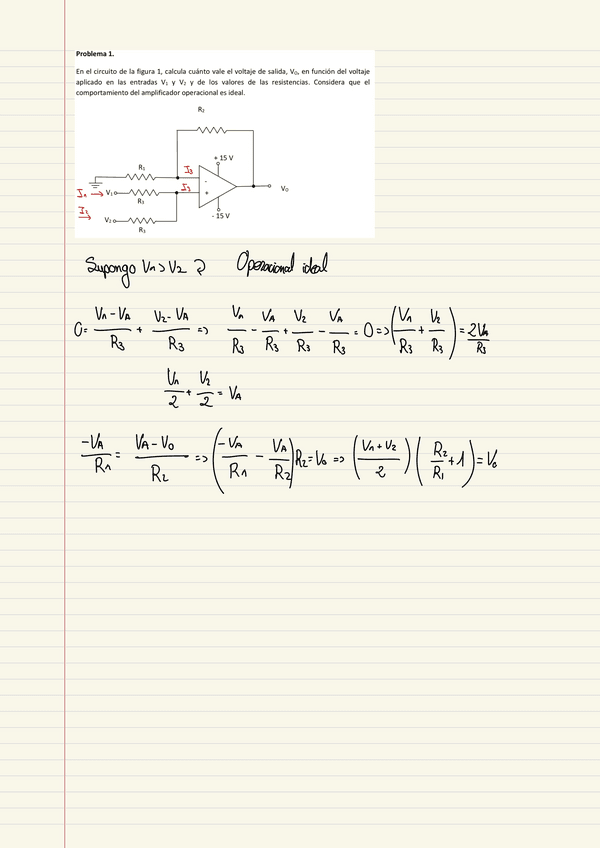 Problema 1.
En el circuito de la figura 1, calcula cuánto vale el voltaje de salida, VO, en función del voltaje
aplicado en las entradas V1 y V2 y de los valores de las resistencias. Considera que el
comportamiento del amplificador operacional es ideal.
R2
+ 15 V
R1
I3
-
I1 → V1
R3
I3
+
VO
I2 →
V2
R3
- 15 V
Supongo V1 > V2 Operacional ideal
0 = (V1 - VA)/R3 + (V2 - VA)/R3 => V1/R3 - VA/R3 + V2/R3 - VA/R3 = 0 => (V1/R3 + V2/R3) = 2VA/R3
V1/2 + V2/2 = VA
-VA/R1 = (VA - VO)/R2 => (-VA/R1 - VA/R2) R2 = VO => ((V1 + V2)/2) (R2/R1 + 1) = VO